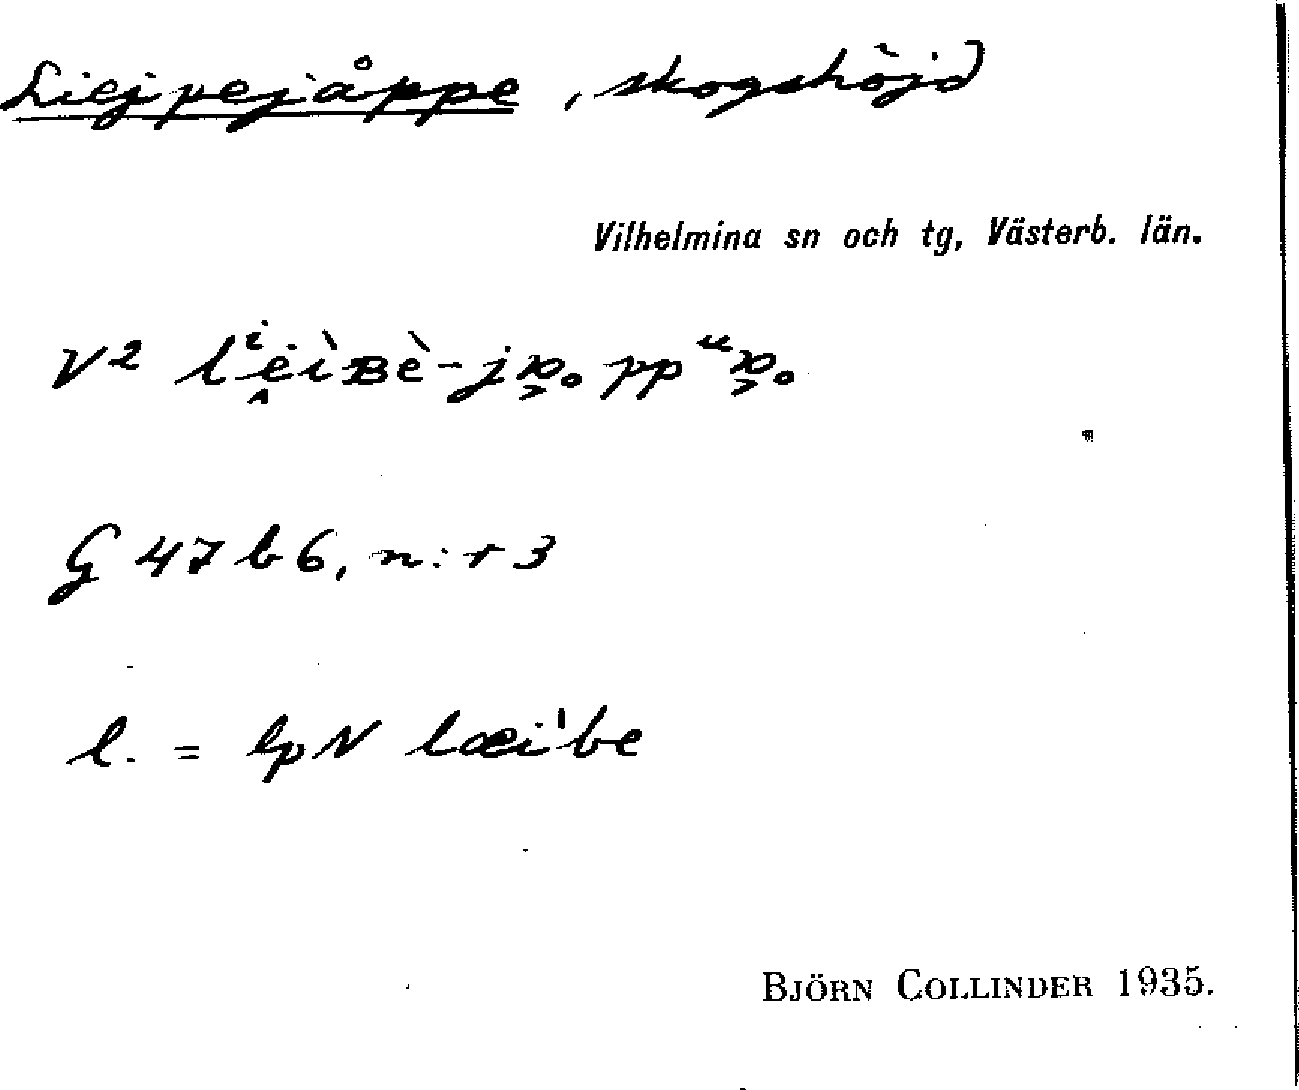 Liejpejåppe, skogshöjd
Vilhelmina sn och tg, Västerb. län.
V2
G 47 b 6, n:r 3
l. = lpN læi'be
BJÖRN COLLINDER 1935.